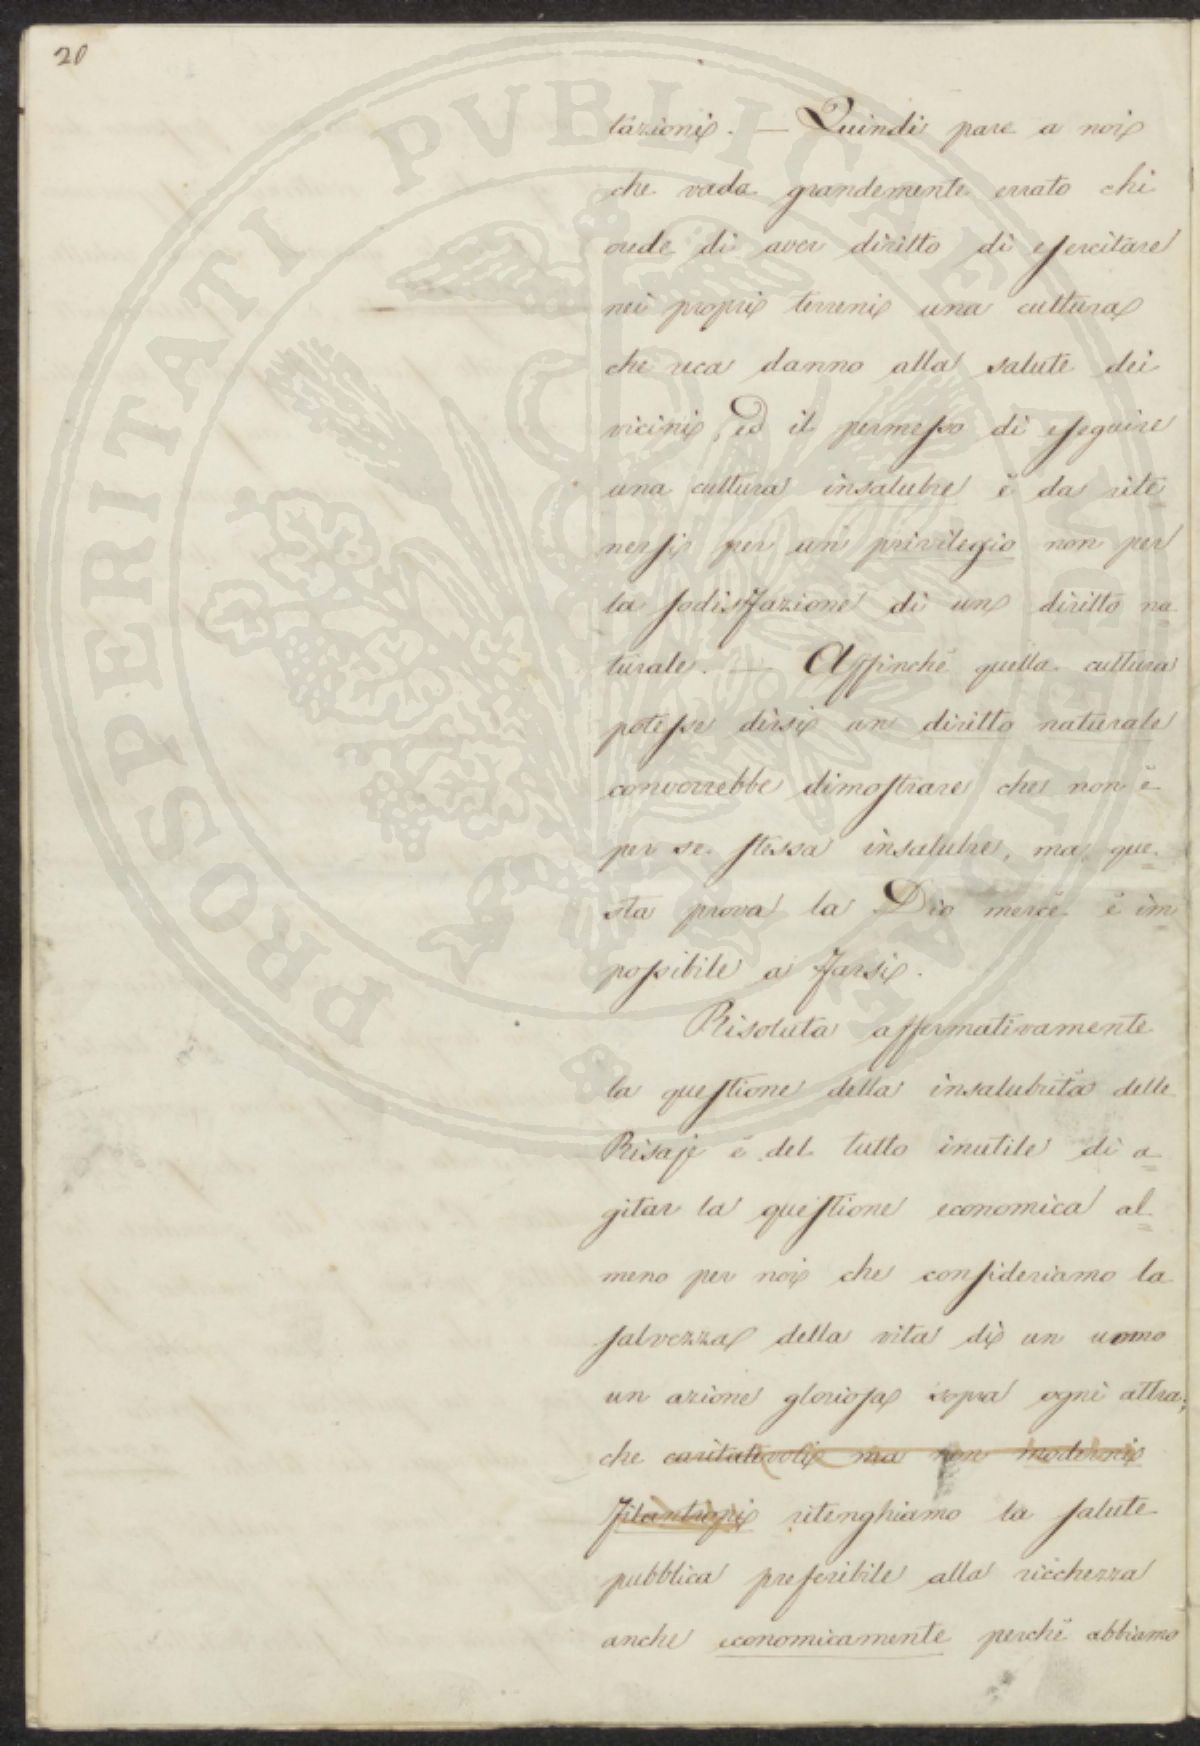 20
tazioni. — Quindi pare a noi
che vada grandemente errato chi
crede di aver diritto di esercitare
nei proprj terreni una cultura
che reca danno alla salute dei
vicini, ed il permesso di eseguire
una cultura insalubre è da rite=
nersi per un privilegio non per
la sodisfazione di un diritto na=
turale. — Affinchè quella cultura
potesse dirsi un diritto naturale
converrebbe dimostrare che non è
per se stessa insalubre, ma que=
sta prova la Dio mercè è im=
possibile a farsi.
Risoluta affermativamente
la questione della insalubrità delle
Risaje è del tutto inutile di a=
gitar la questione economica al=
meno per noi che consideriamo la
salvezza della vita di un uomo
un azione gloriosa sopra ogni altra;
che caritatevoli ma non moderni
filantropi ritenghiamo la salute
pubblica preferibile alla ricchezza
anche economicamente perchè abbiamo
PROSPERITATI PVBLICAE AVGENDAE